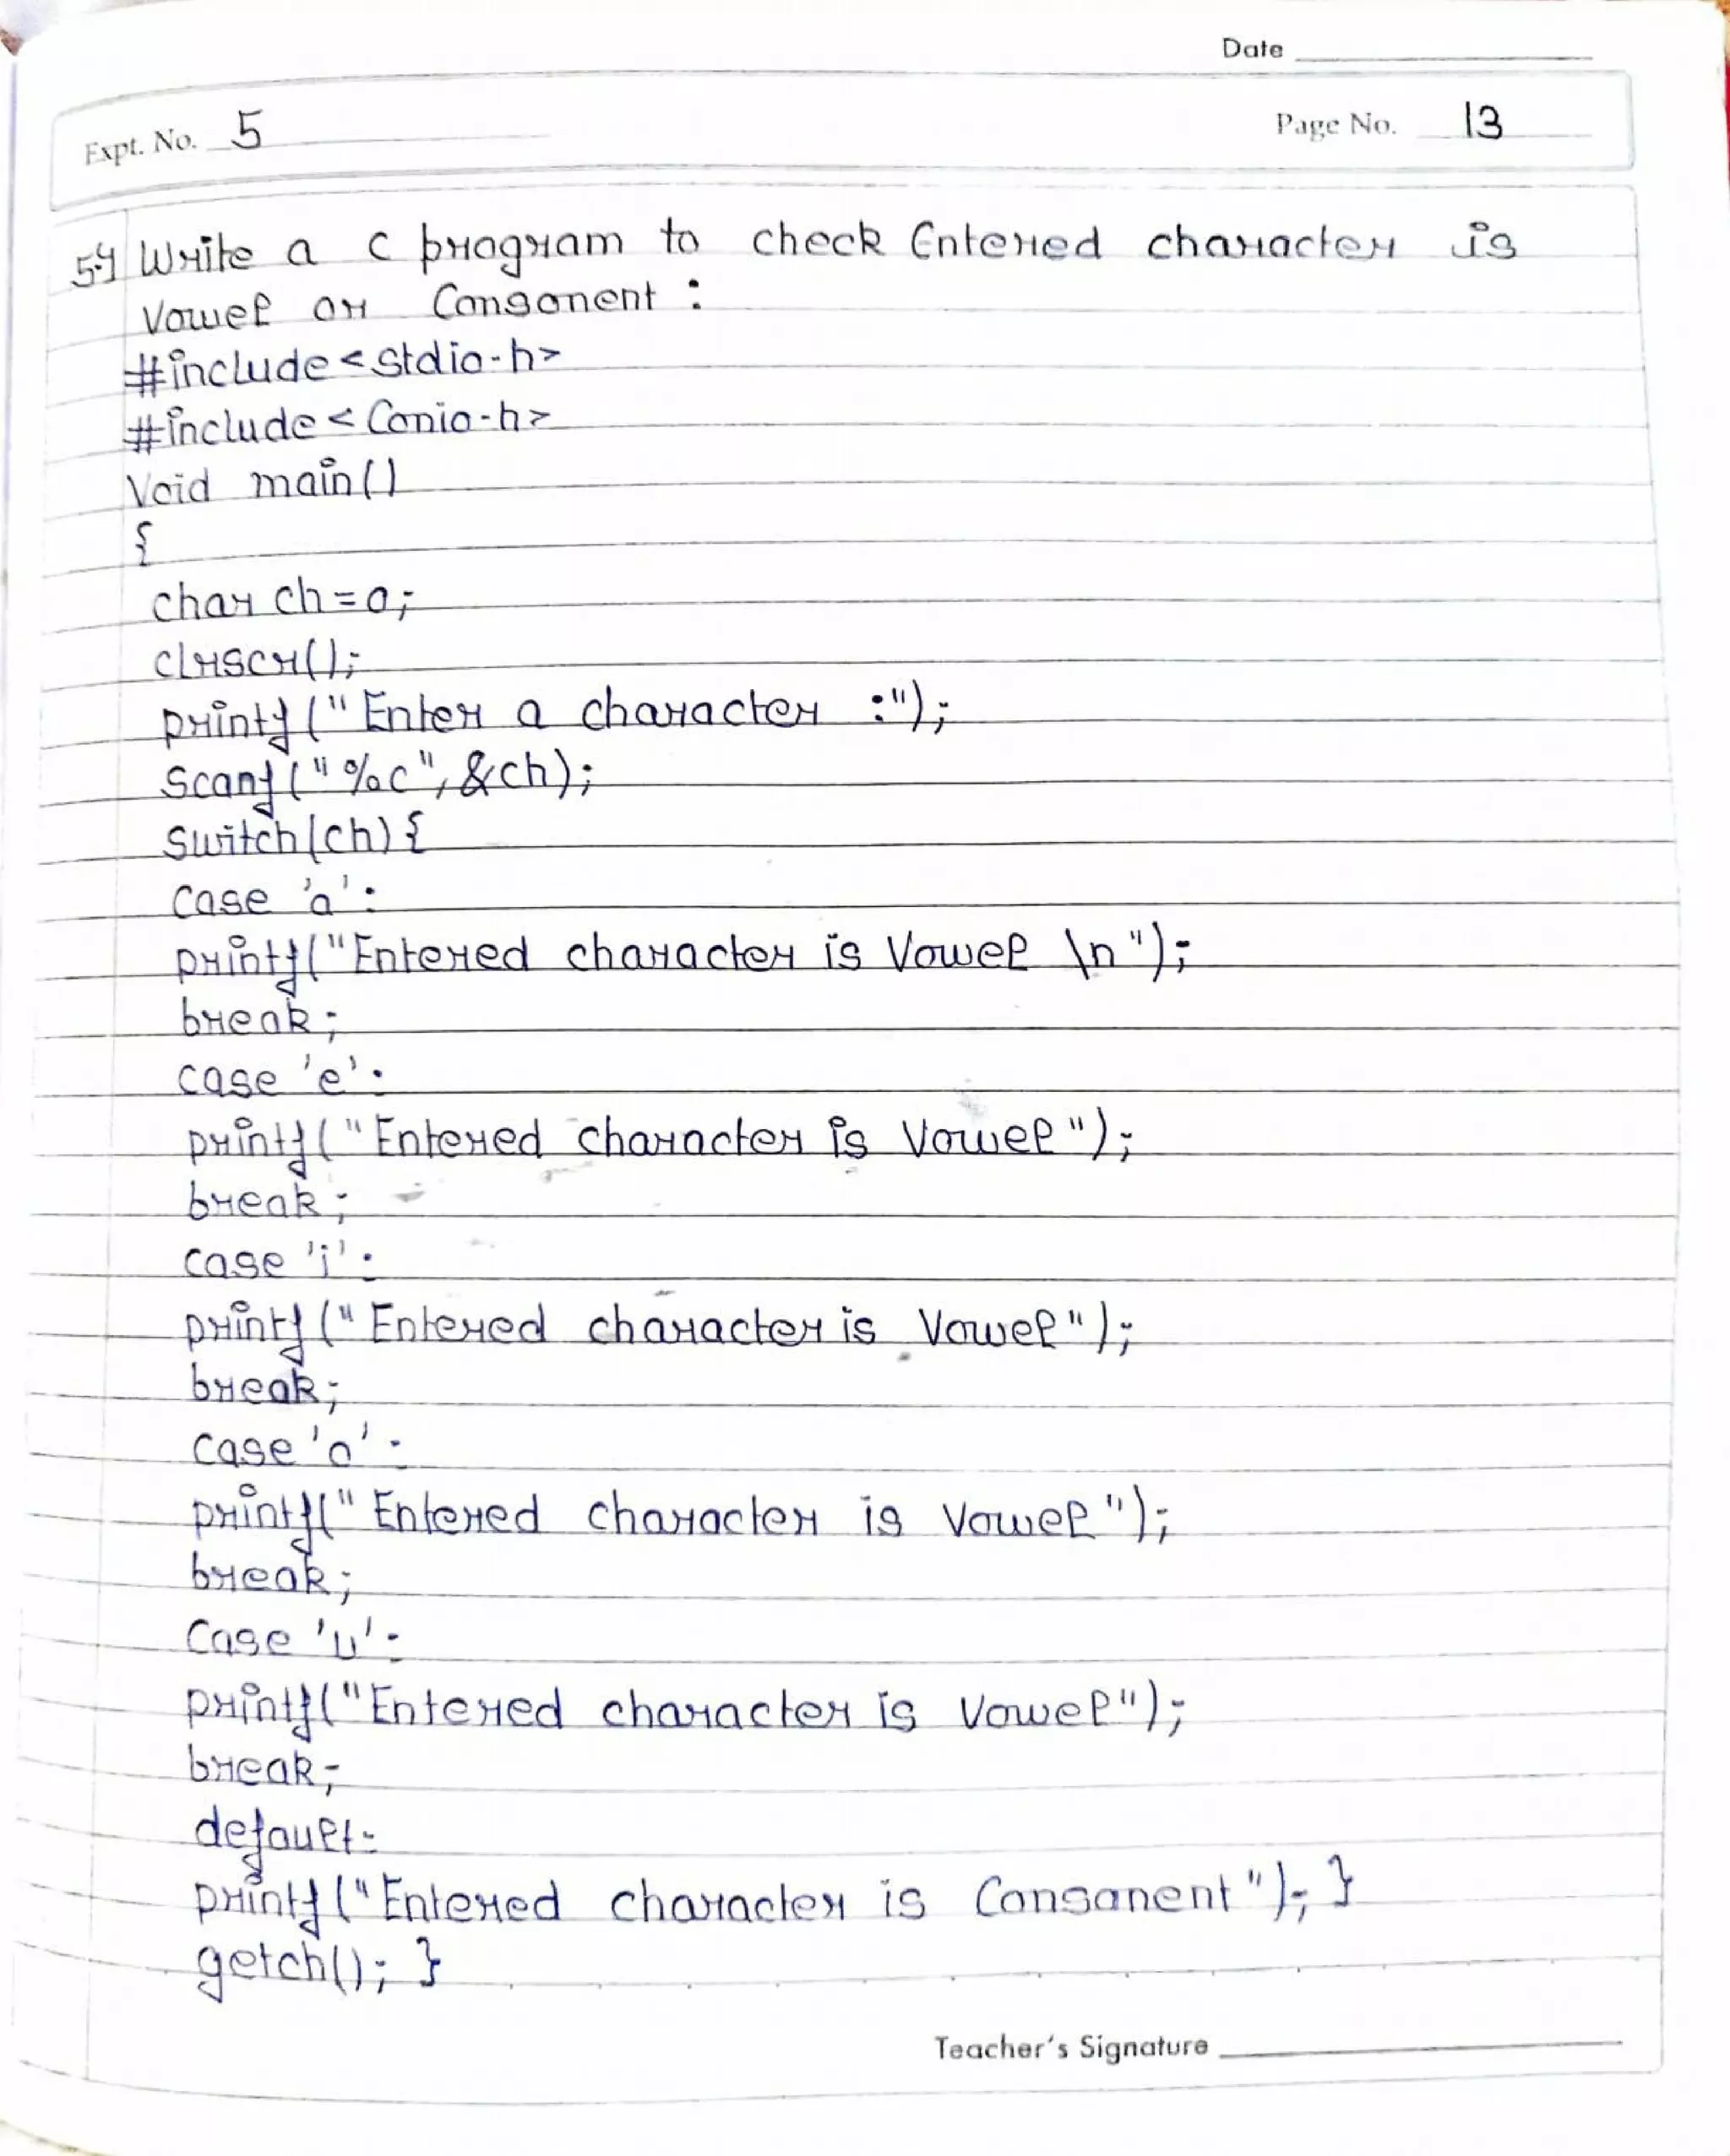 Date
Expt. No. 5
Page No. 13
5.4 Write a C program to check Entered character is
Vowel or Consonent :
#include<stdio.h>
#include<Conio.h>
Void main()
{
char ch=0;
clrscr();
printf("Enter a character :");
Scanf("%c",&ch);
Switch(ch){
Case 'a':
printf("Entered character is Vowel \n");
break;
case 'e':
printf("Entered character is Vowel");
break;
case 'i':
printf("Entered character is Vowel");
break;
case 'o':
printf("Entered character is Vowel");
break;
Case 'u':
printf("Entered character is Vowel");
break;
default:
printf("Entered character is Consanent"); }
getch(); }
Teacher's Signature